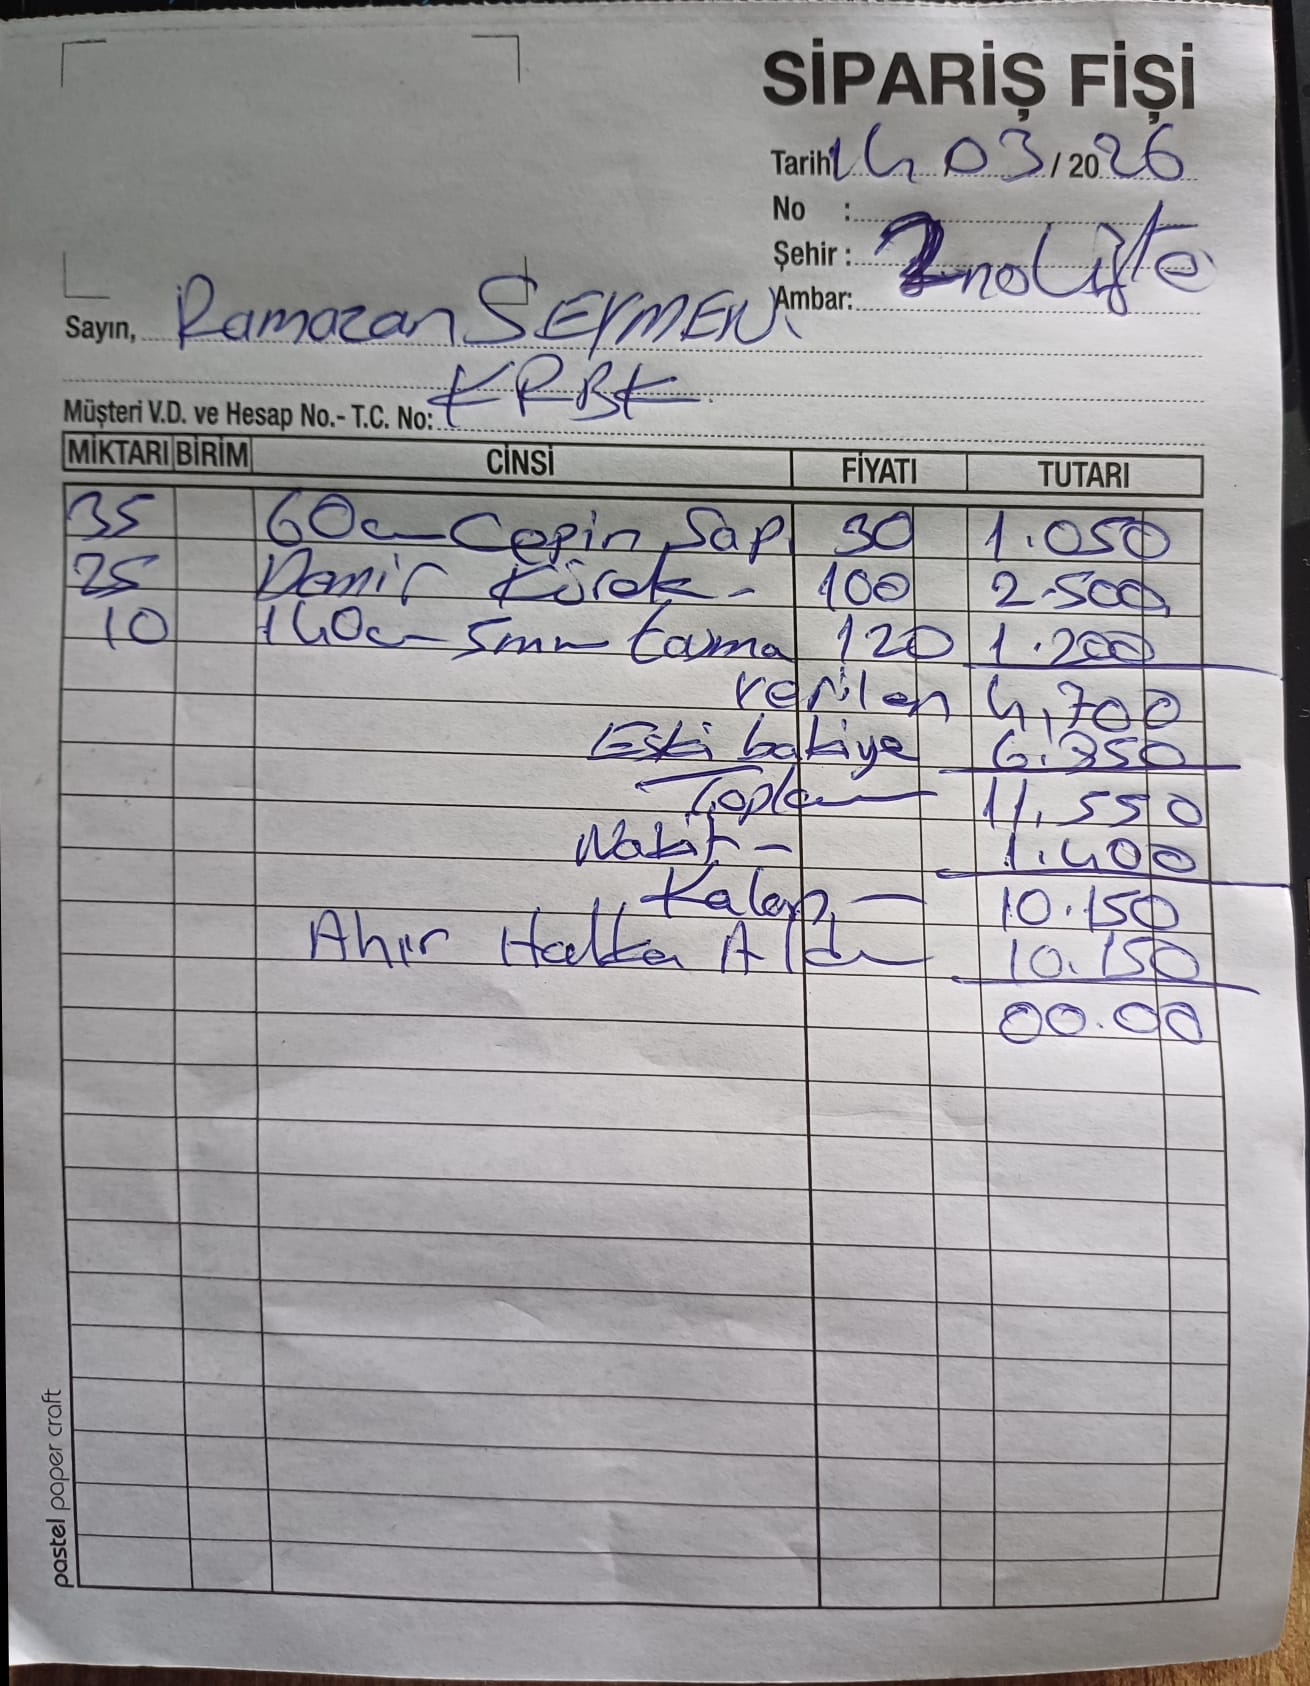 SİPARİŞ FİŞİ
Tarih 14 03 / 2026
No :
Şehir : 2 no Liste
Ambar:
Sayın, Ramazan SEYMEN
KRBK
Müşteri V.D. ve Hesap No.- T.C. No:
MİKTARI BİRİM CİNSİ FİYATI TUTARI
35 60cm Çepin Sap 30 1.050
25 Demir Kürek - 100 2.500
10 140cm 5mm tasma 120 1.200
verilen 4,700
Eski bakiye 6.850
Toplam 11,550
Nakit - 1.400
Kalan - 10.150
Ahır Halka Aldı 10.150
00.00
pastel paper craft